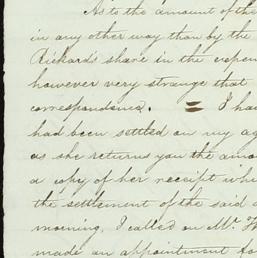 As to the amount of the
in any other way than by the
Rickard's share in the expen
however very strange that
correspondence. = I ha
had been settled on my ag
as she returns you the amo
a copy of her receipt whi
the settlement of the said a
morning, I called on Mr.
made an appointment fo